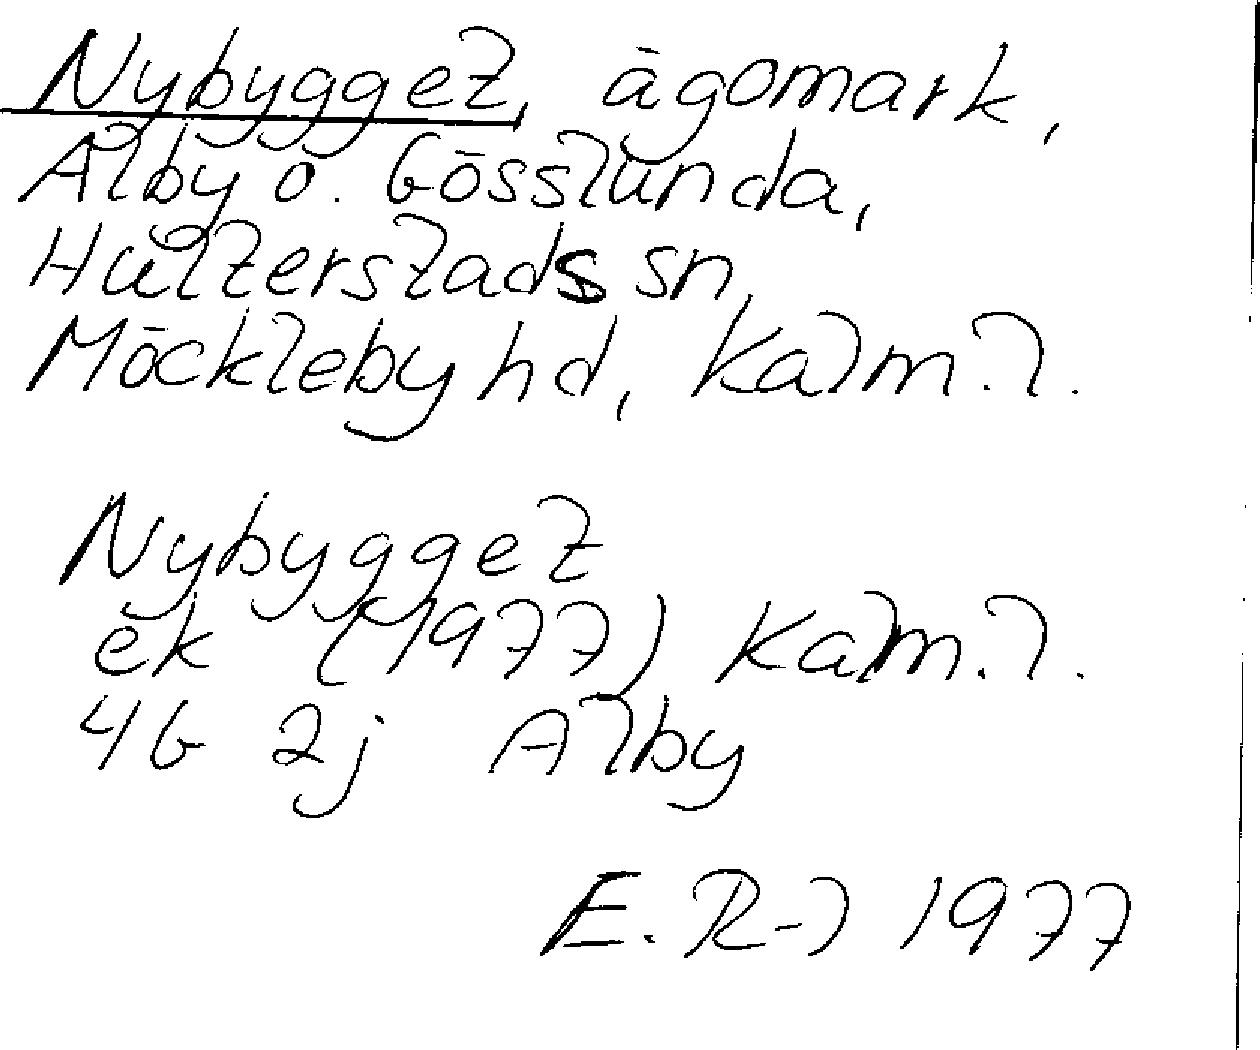 Nybygget, ägomark,
Alby o. Gösslunda,
Hulterstads sn,
Möckleby hd, Kalm. l.
Nybygget
ek (1977) Kalm. l.
4G 2j Alby
E. R-l 1977